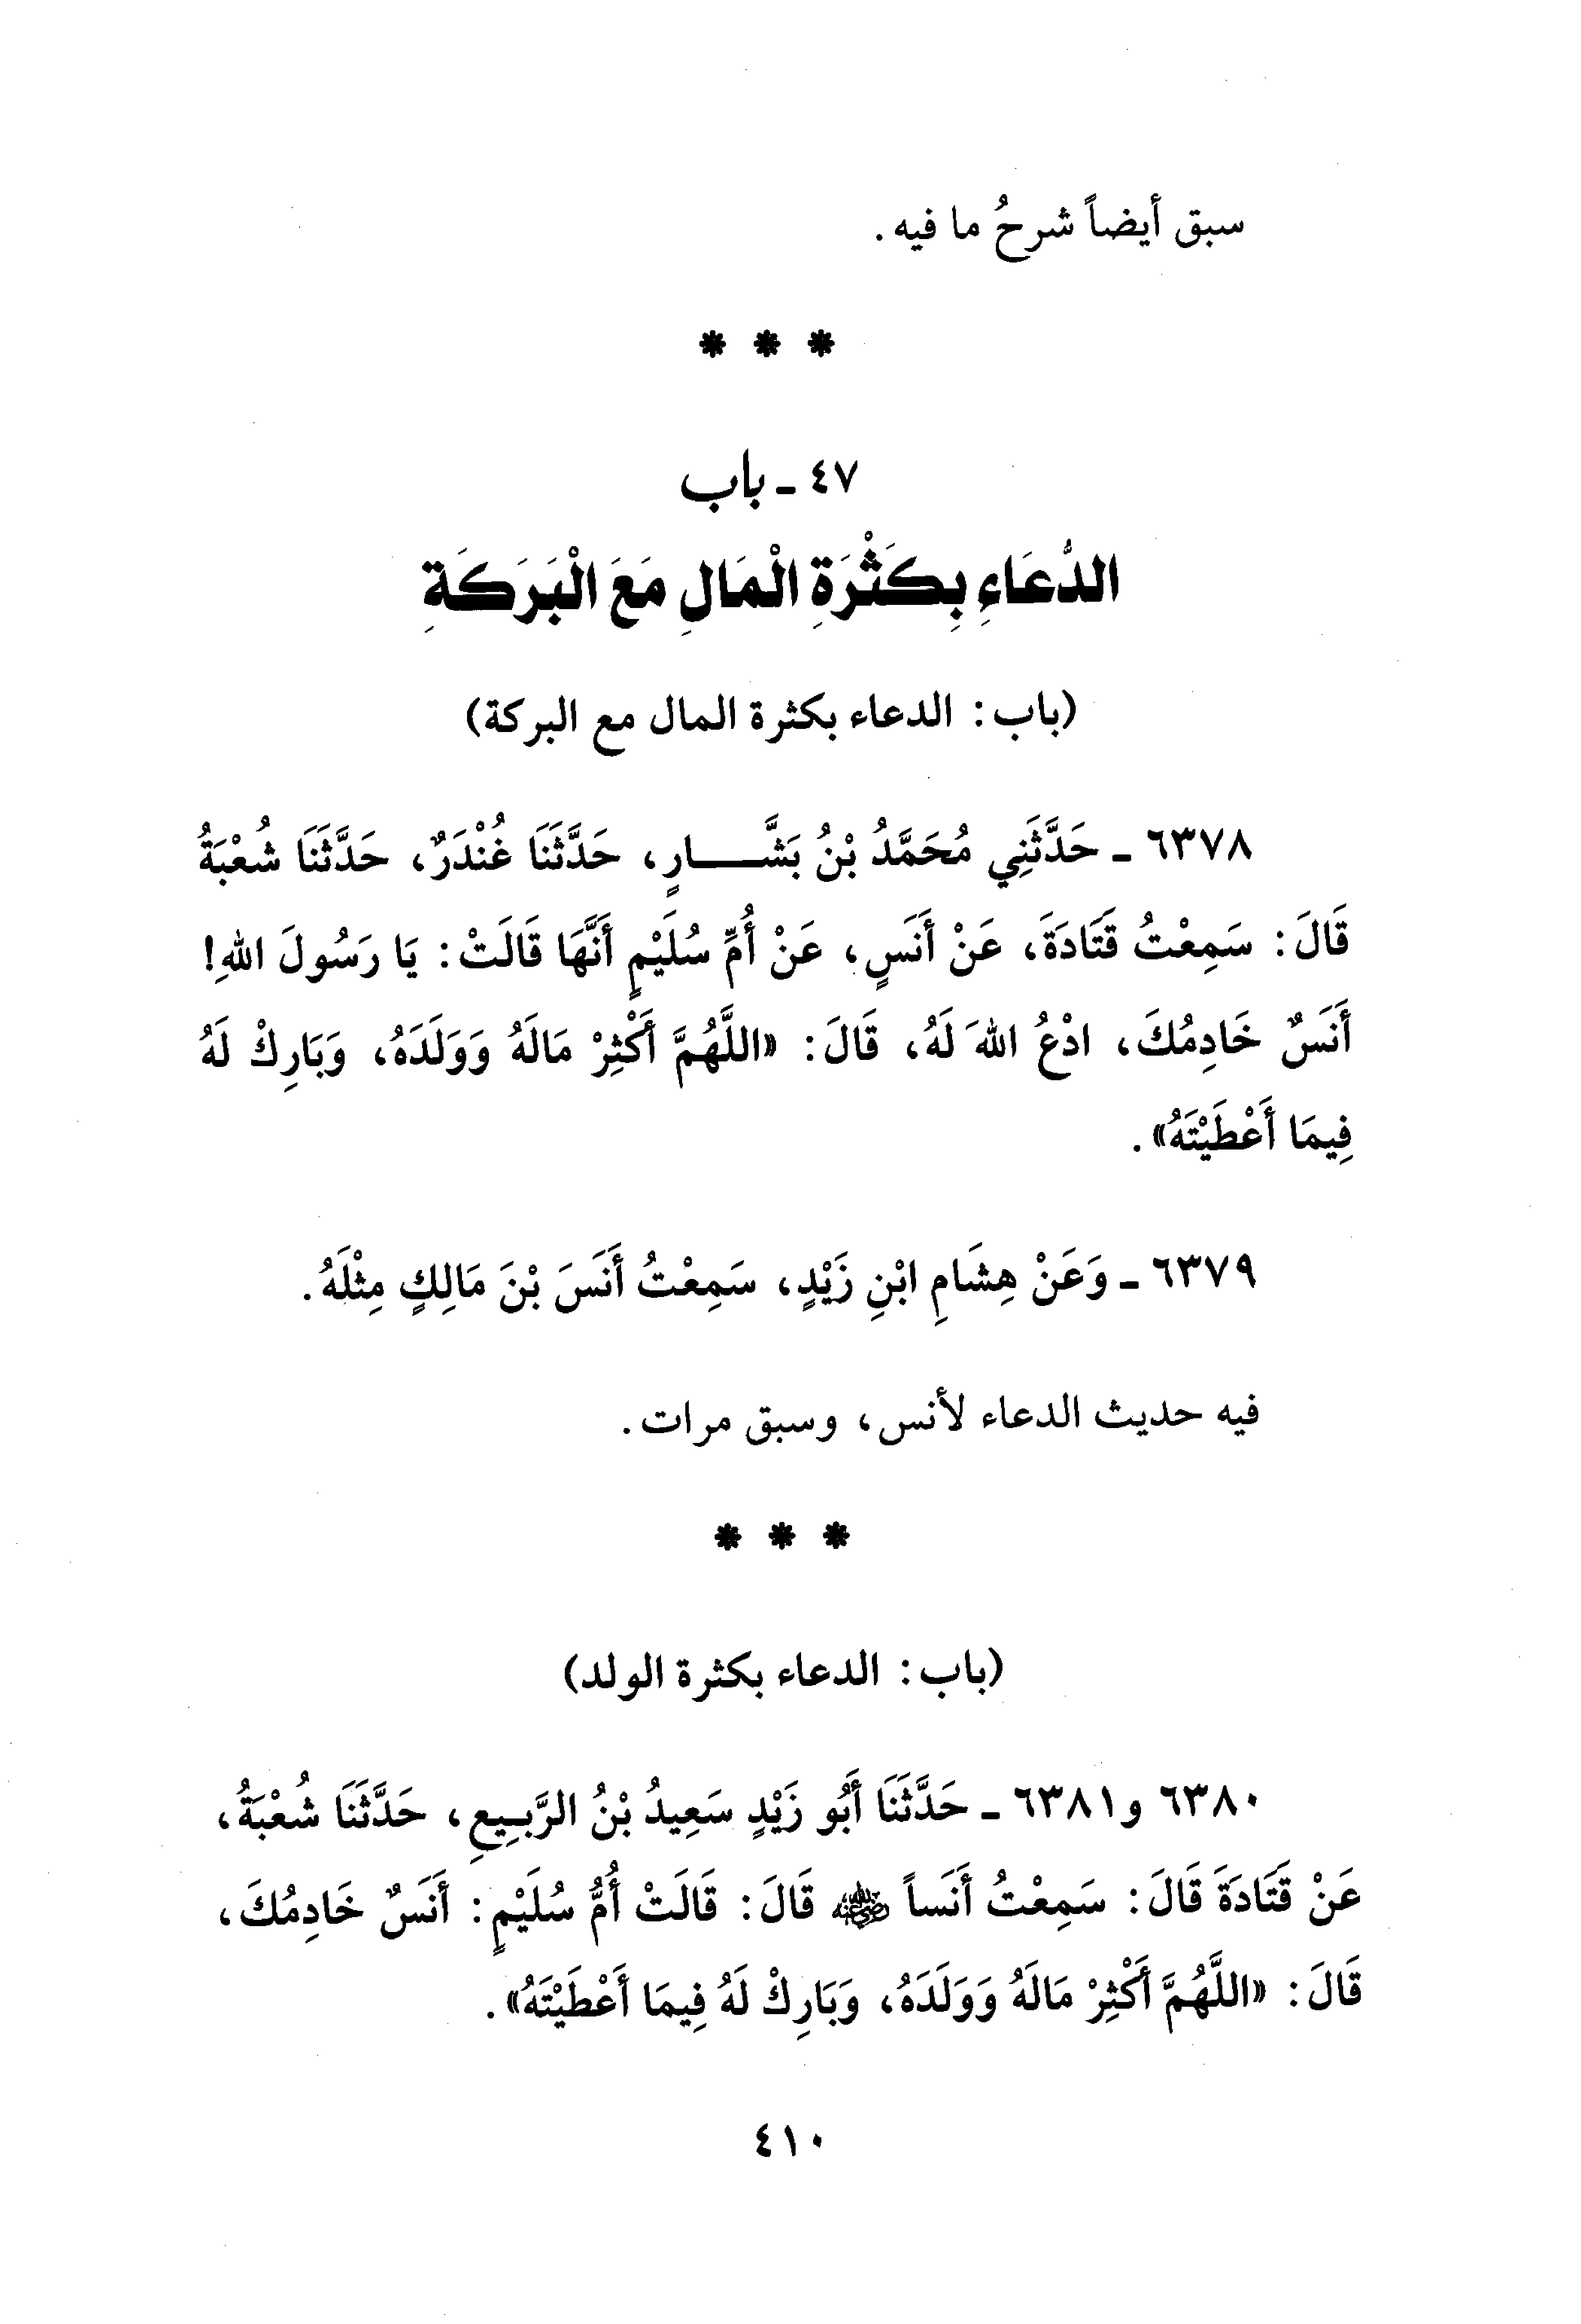 سبق أيضاً شرحُ ما فيه .
* * *
٤٧ ـ باب
الدُّعَاءِ بِكَثْرَةِ الْمَالِ مَعَ الْبَرَكَةِ
(باب : الدعاء بكثرة المال مع البركة)
٦٣٧٨ ـ حَدَّثَنِي مُحَمَّدُ بْنُ بَشَّـــارٍ، حَدَّثَنَا غُنْدَرٌ، حَدَّثَنَا شُعْبَةُ
قَالَ : سَمِعْتُ قَتَادَةَ، عَنْ أَنَسٍ، عَنْ أُمِّ سُلَيْمٍ أَنَّهَا قَالَتْ : يَا رَسُولَ اللهِ!
أَنَسٌ خَادِمُكَ، ادْعُ اللهَ لَهُ، قَالَ : «اللَّهُمَّ أَكْثِرْ مَالَهُ وَوَلَدَهُ، وَبَارِكْ لَهُ
فِيمَا أَعْطَيْتَهُ» .
٦٣٧٩ ـ وَعَنْ هِشَامِ ابْنِ زَيْدٍ، سَمِعْتُ أَنَسَ بْنَ مَالِكٍ مِثْلَهُ .
فيه حديث الدعاء لأنس، وسبق مرات .
* * *
(باب : الدعاء بكثرة الولد)
٦٣٨٠ و٦٣٨١ ـ حَدَّثَنَا أَبُو زَيْدٍ سَعِيدُ بْنُ الرَّبِيعِ، حَدَّثَنَا شُعْبَةُ،
عَنْ قَتَادَةَ قَالَ : سَمِعْتُ أَنَساً رضي الله عنه قَالَ : قَالَتْ أُمُّ سُلَيْمٍ : أَنَسٌ خَادِمُكَ،
قَالَ : «اللَّهُمَّ أَكْثِرْ مَالَهُ وَوَلَدَهُ، وَبَارِكْ لَهُ فِيمَا أَعْطَيْتَهُ» .
٤١٠